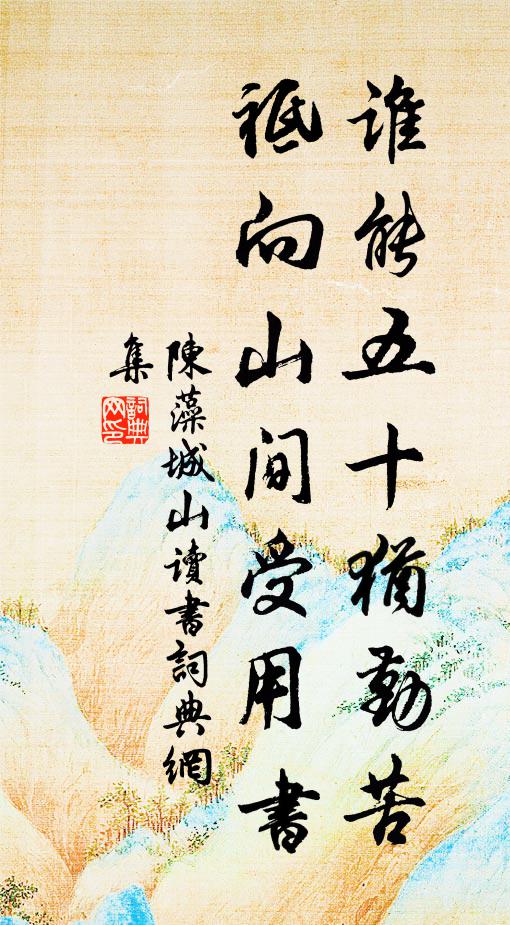 誰能五十猶勤苦
祗向山間受用書
陳藻城山讀書詞典網
集
詞典網印